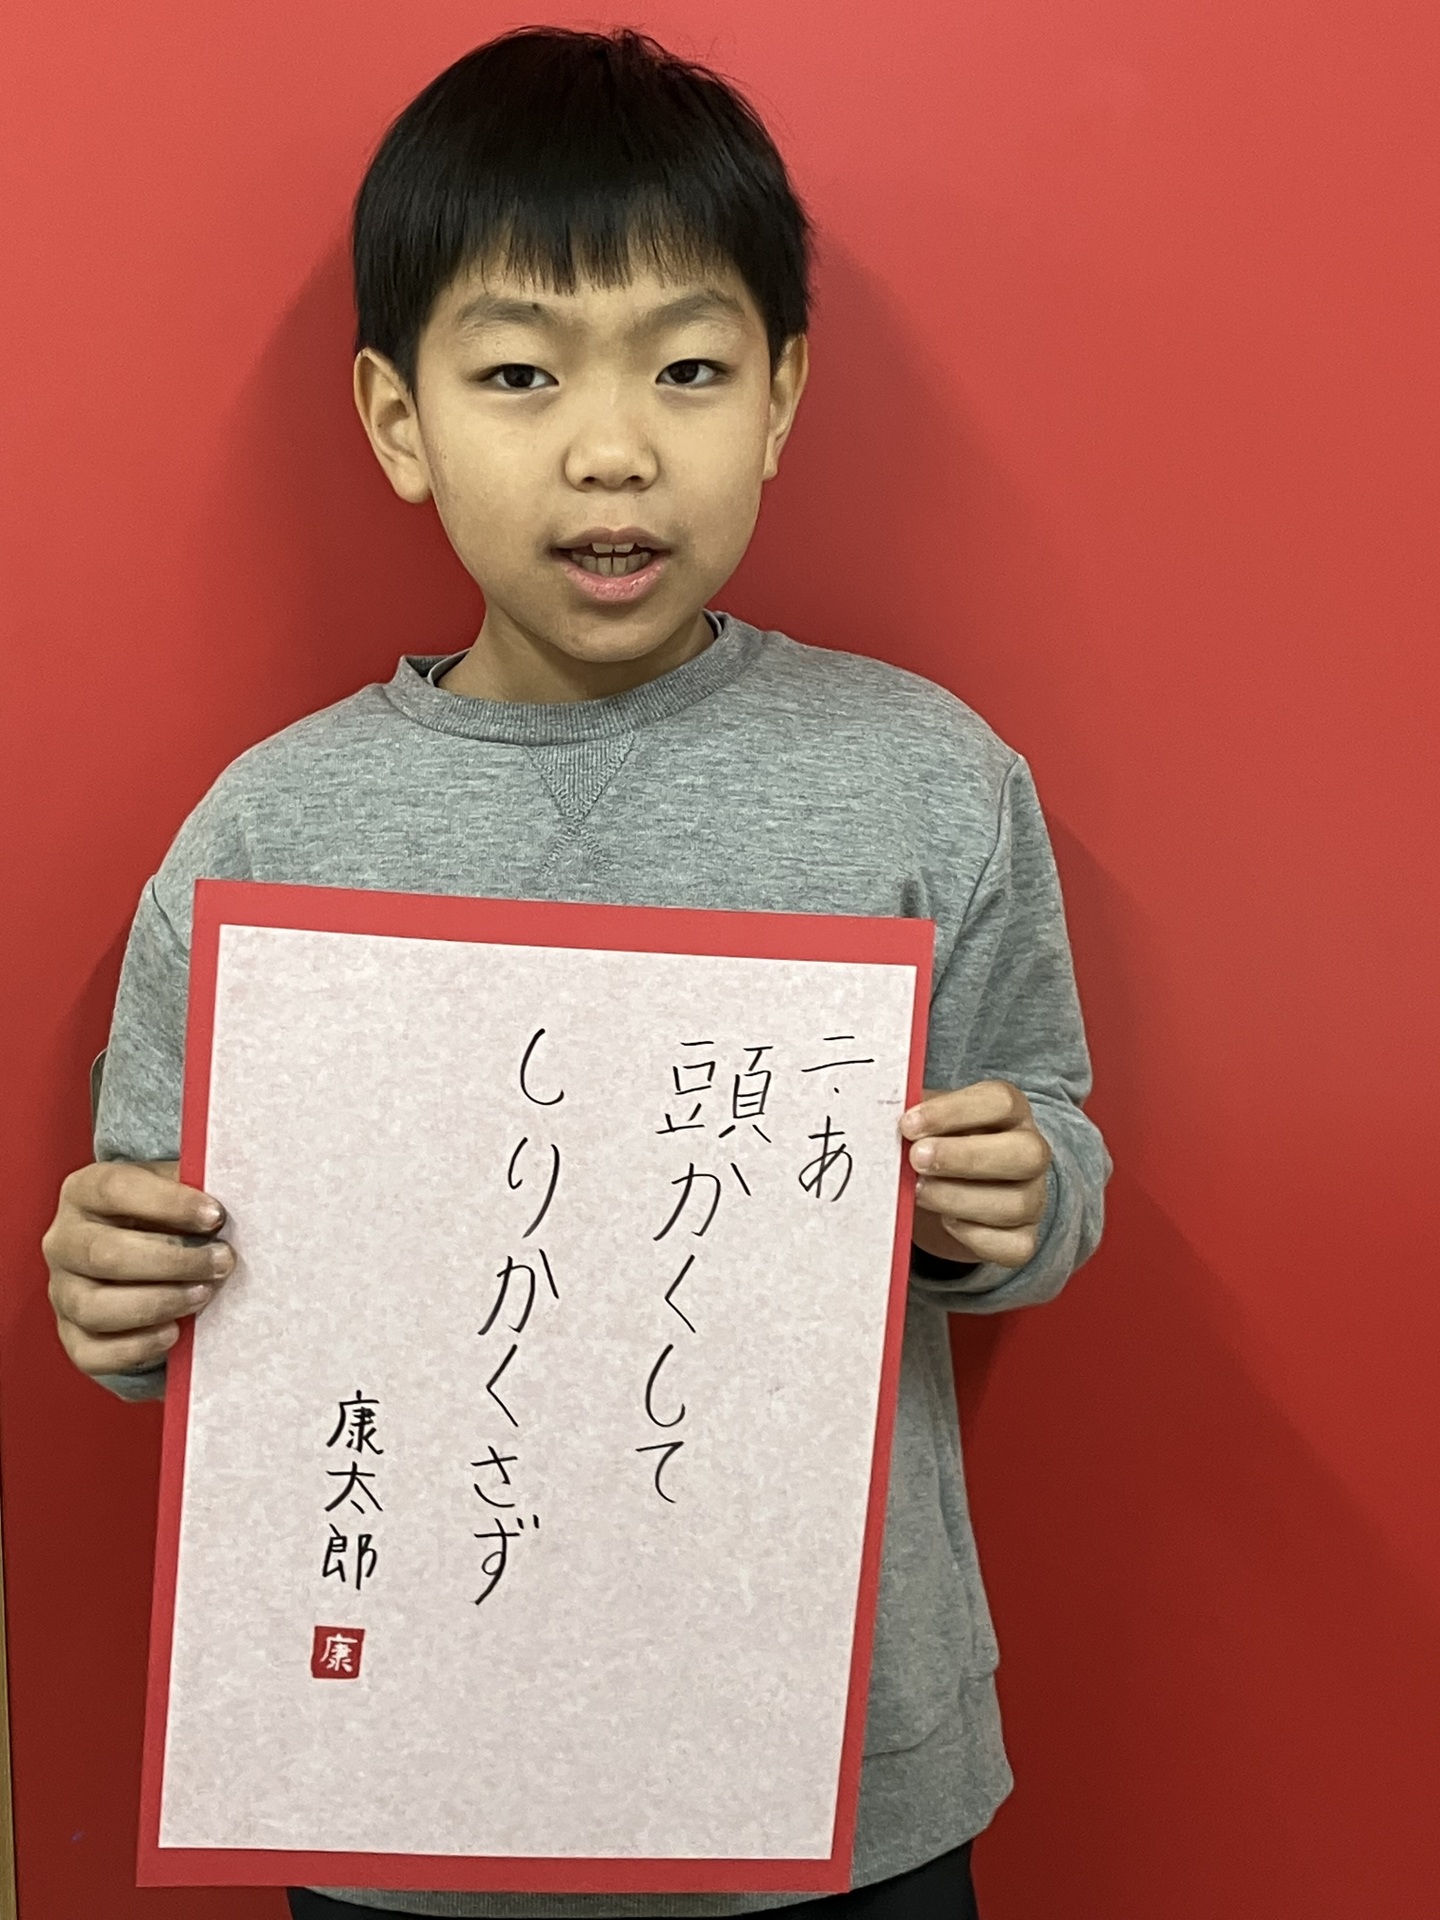 二.あ
頭かくして
しりかくさず
康太郎
康